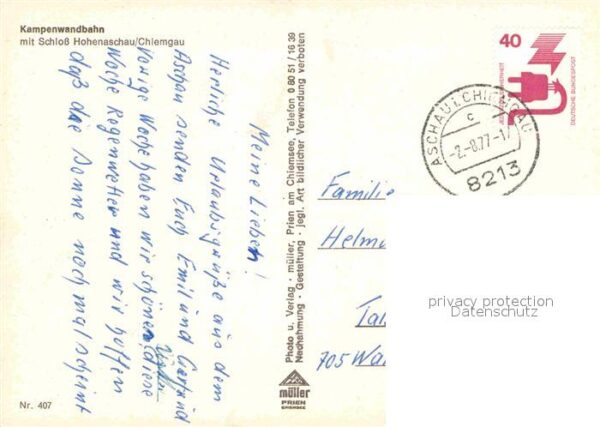 Kampenwandbahn
mit Schloß Hohenaschau/Chiemgau
Meine Lieben!
Herzliche Urlaubsgrüße aus dem
Aschau senden Euch Emil und Gertrud
Vorige Woche haben wir schönen, diese
Woche Regenwetter und wir hoffen
daß die Sonne nochmal scheint
Nr. 407
Photo u. Verlag · müller, Prien am Chiemsee, Telefon 0 80 51 / 16 39
Nachahmung · Gestaltung · jegl. Art bildlicher Verwendung verboten
müller
PRIEN
CHIEMSEE
40
DEUTSCHE BUNDESPOST
ASCHAU I. CHIEMGAU
c
-2.-8.77-1
8213
Familie
Helmu
Tal
705 Wa
privacy protection
Datenschutz